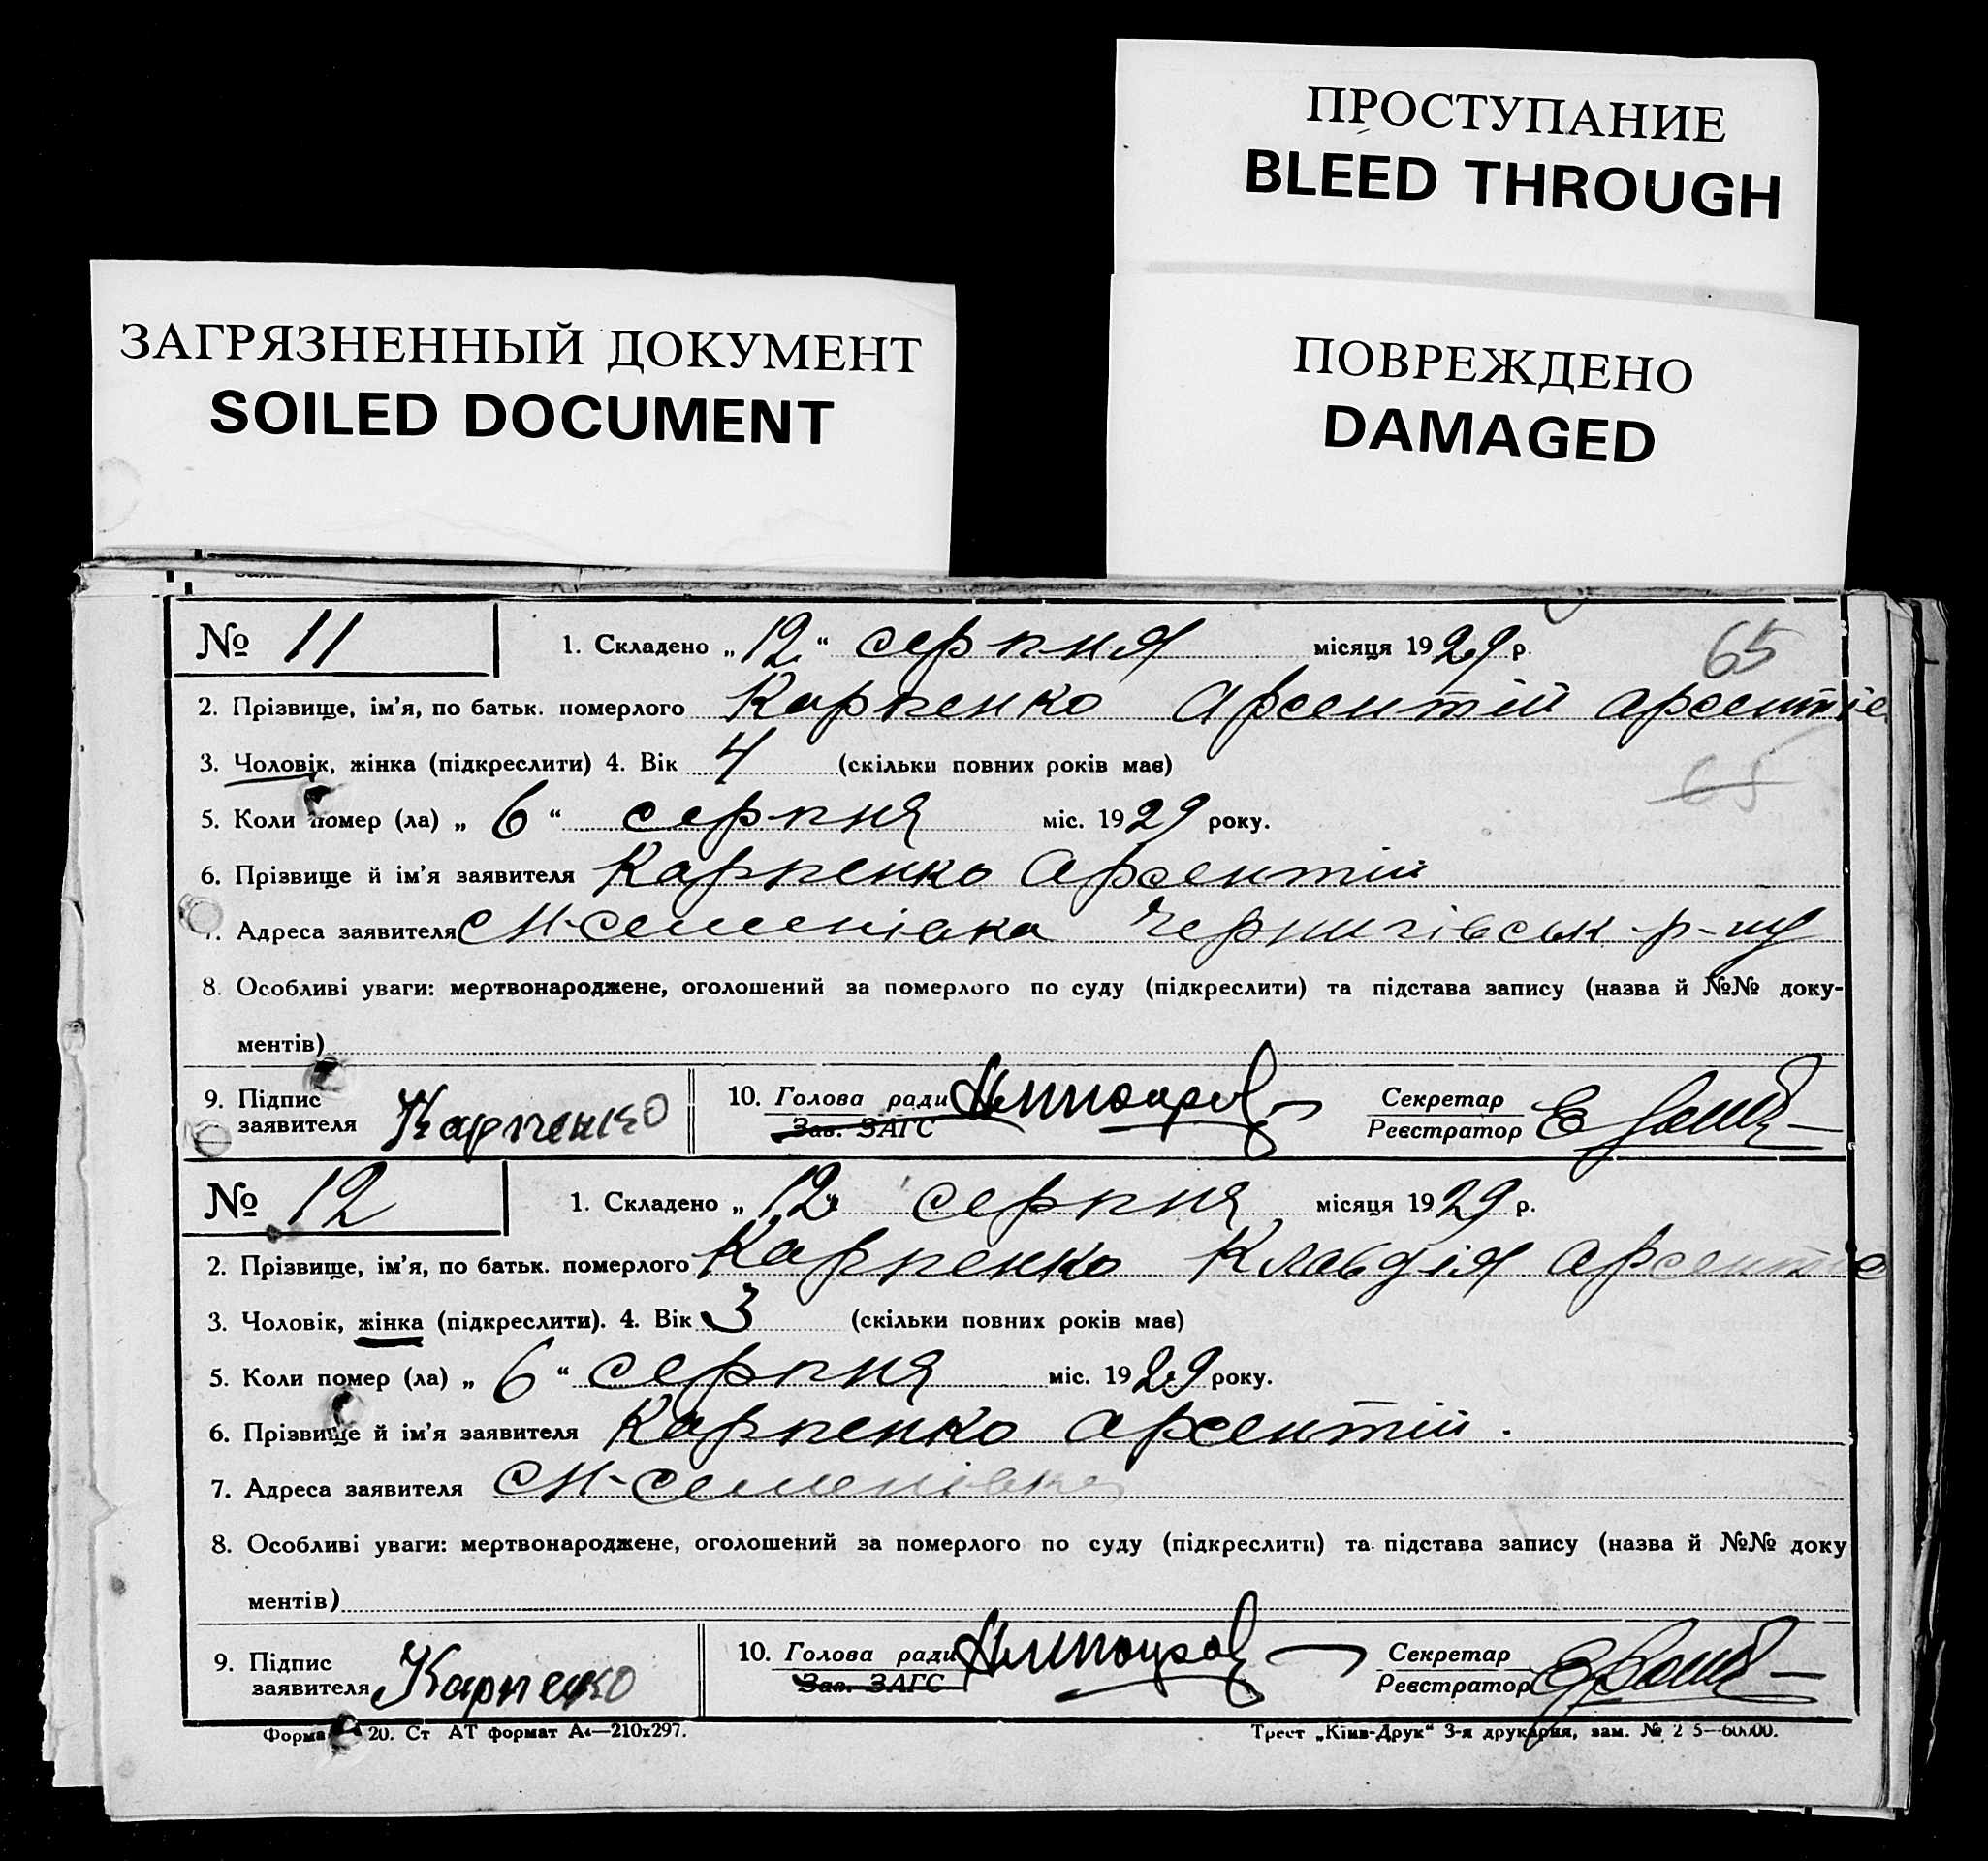 ПРОСТУПАНИЕ
BLEED THROUGH
ЗАГРЯЗНЕННЫЙ ДОКУМЕНТ
SOILED DOCUMENT
ПОВРЕЖДЕНО
DAMAGED
№ 11 1. Складено „12“ серпня місяця 1929 р. 65
2. Прізвище, ім'я, по батьк. померлого Карпенко Арсентій Арсентіє
3. Чоловік, жінка (підкреслити) 4. Вік 4 (скільки повних років має)
65
5. Коли помер (ла) „6“ серпня міс. 1929 року.
6. Прізвище й ім'я заявителя Карпенко Арсентій
7. Адреса заявителя с М-Семенівка Чернигівськ р-ну
8. Особливі уваги: мертвонароджене, оголошений за померлого по суду (підкреслити) та підстава запису (назва й №№ доку-
ментів)
9. Підпис заявителя Карпенко 10. Голова ради Зав. ЗАГС Секретар Реєстратор
№ 12 1. Складено „12“ серпня місяця 1929 р.
2. Прізвище, ім'я, по батьк. померлого Карпенко Клавдія Арсентіє
3. Чоловік, жінка (підкреслити). 4. Вік 3 (скільки повних років має)
5. Коли помер (ла) „6“ серпня міс. 1929 року.
6. Прізвище й ім'я заявителя Карпенко Арсентій.
7. Адреса заявителя с М-Семенівка
8. Особливі уваги: мертвонароджене, оголошений за померлого по суду (підкреслити) та підстава запису (назва й №№ доку
ментів)
9. Підпис заявителя Карпенко 10. Голова ради Зав. ЗАГС Секретар Реєстратор
Форма 20. Ст АТ формат А4—210х297. Трест „Київ-Друк“ 3-я друкарня, зам. № 2 5—60000.